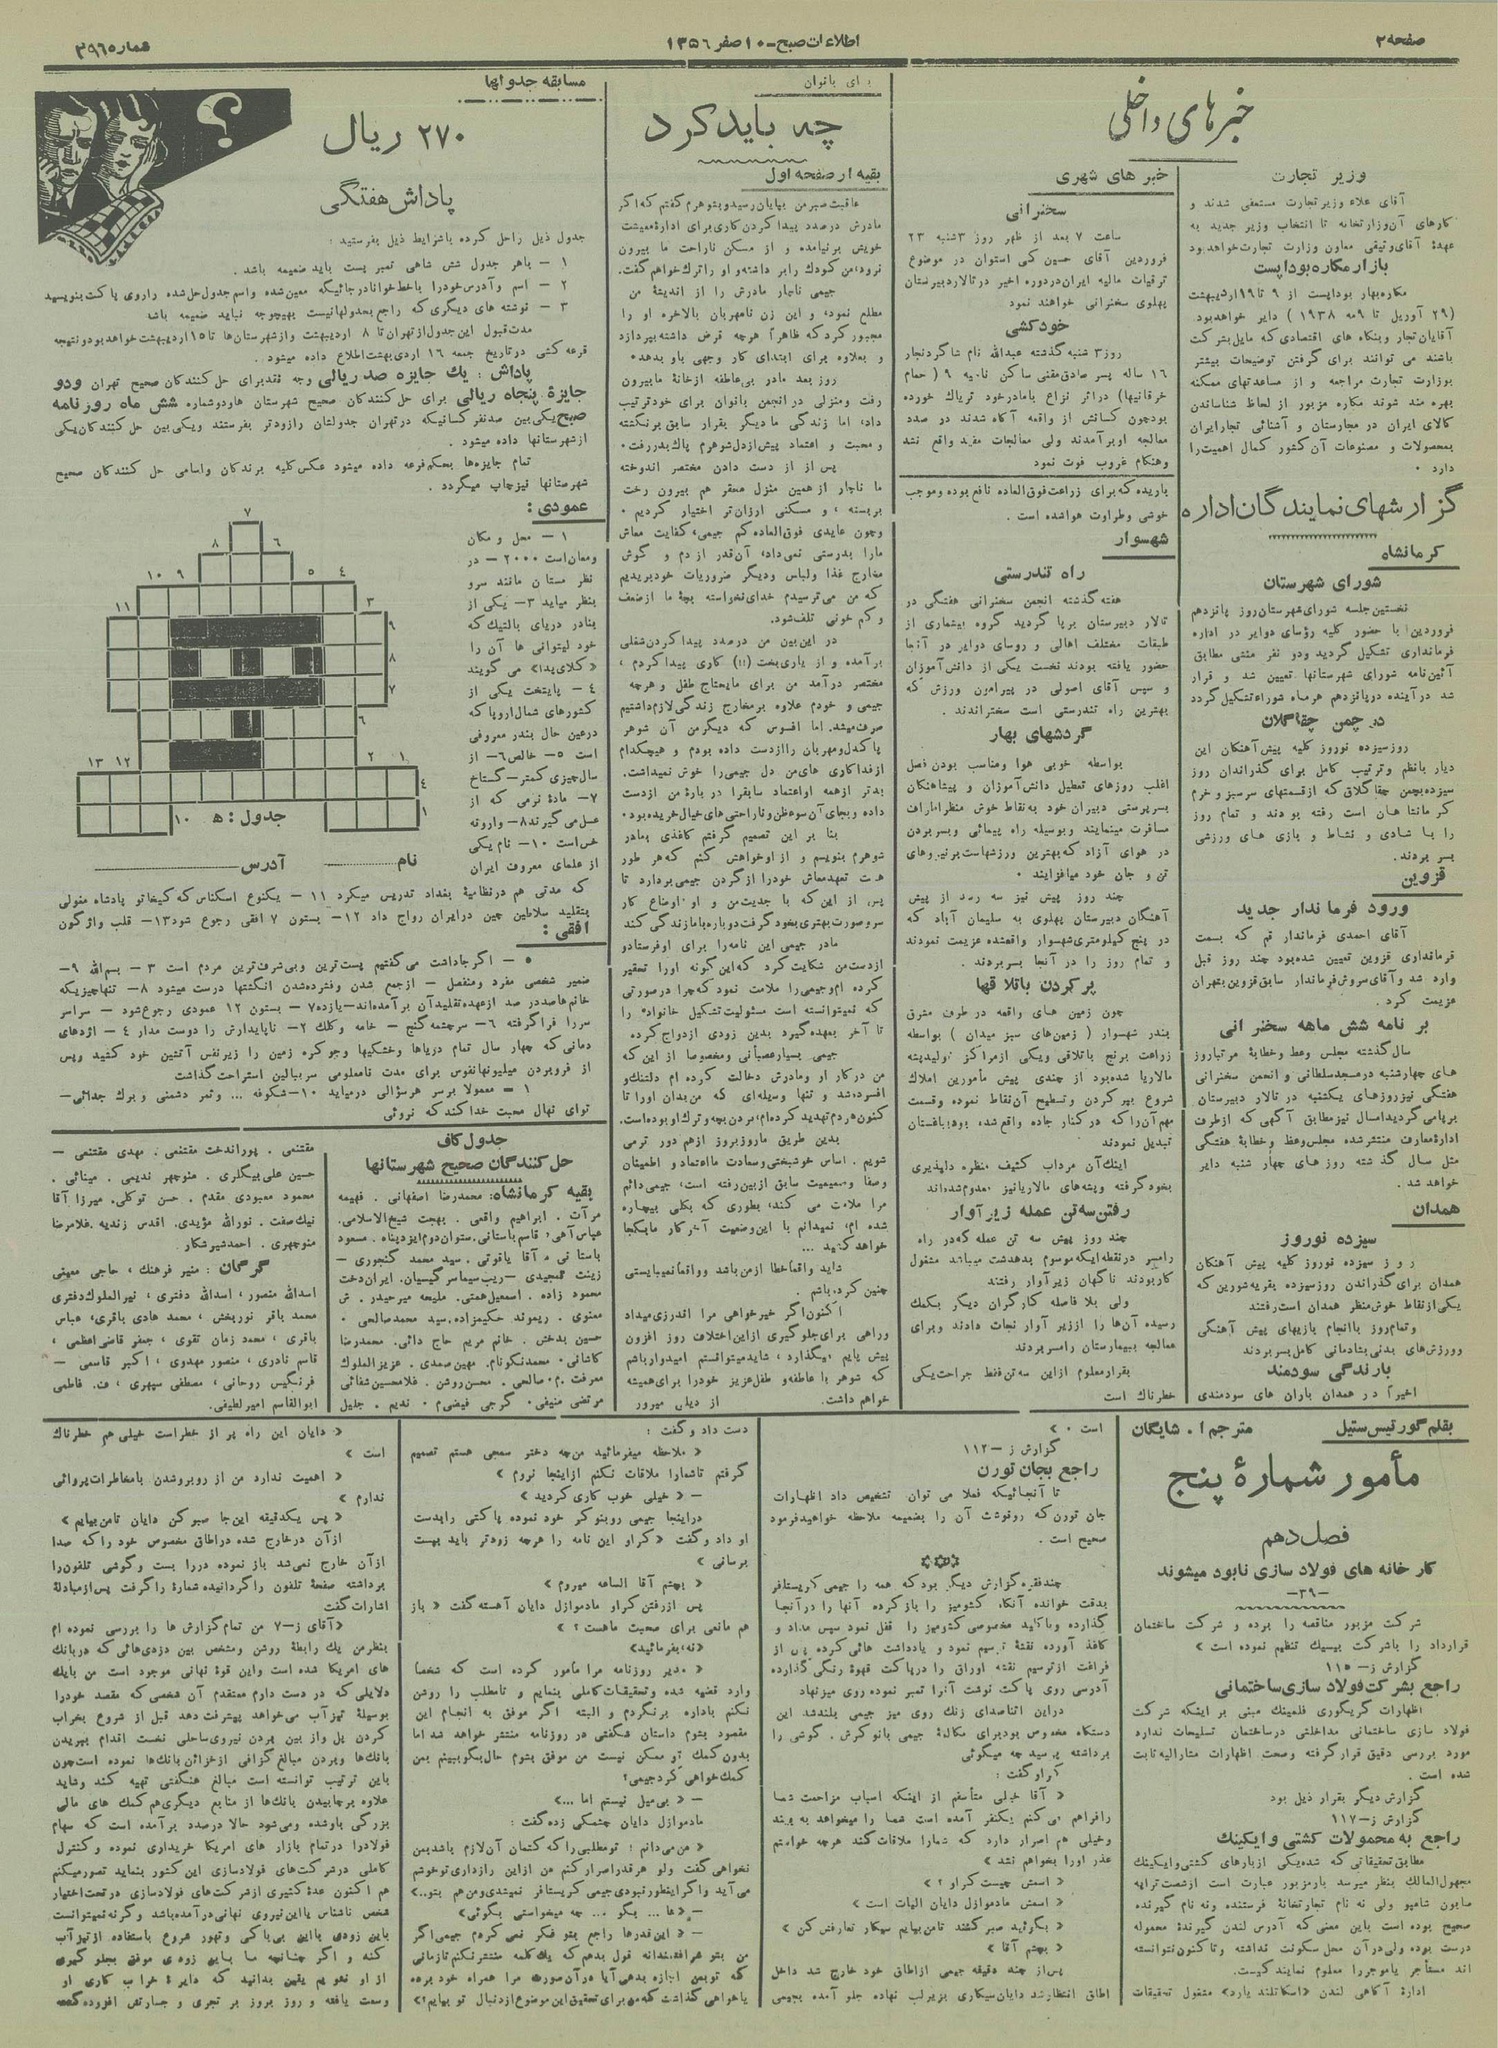 صفحه ۲
اطلاعات صبح - ۱۰ صفر ۱۳۵۶
شماره ۳۹۶۵
خبرهای داخلی
وزیر تجارت
آقای علاء وزیر تجارت مستعفی شدند و
کارهای آن وزارتخانه تا انتخاب وزیر جدید به
عهدهٔ آقای وثیقی معاون وزارت تجارت خواهد بود
بازار مکاره بوداپست
مکاره بهار بوداپست از ۹ تا ۱۹ اردیبهشت
(۲۹ آوریل تا ۹ مه ۱۹۳۸) دایر خواهد بود.
آقایان تجار و بنگاه های اقتصادی که مایل بشرکت
باشند می توانند برای گرفتن توضیحات بیشتر
بوزارت تجارت مراجعه و از مساعدتهای ممکنه
بهره مند شوند مکاره مزبور از لحاظ شناساندن
کالای ایران در مجارستان و آشنائی تجار ایران
بمحصولات و مصنوعات آن کشور کمال اهمیت را
دارد .
گزارشهای نمایندگان اداره
کرمانشاه
شورای شهرستان
نخستین جلسه شورای شهرستان روز پانزدهم
فروردین با حضور کلیه رؤسای دوایر در اداره
فرمانداری تشکیل گردید و دو نفر منشی مطابق
آئین نامه شورای شهرستانها تعیین شد و قرار
شد در آینده دو پانزدهم هر ماه شوراء تشکیل گردد
روز سیزده نوروز کلیه پیش آهنگان این
دیار بانظم و ترتیب کامل برای گذراندن روز
را با شادی و نشاط و بازی های ورزشی
بسر بردند.
قزوین
ورود فرماندار جدید
آقای احمدی فرماندار قم که بسمت
فرمانداری قزوین تعیین شده بود چند روز قبل
وارد شد و آقای سروش فرماندار سابق قزوین بتهران
عزیمت کرد .
برنامه شش ماهه سخنرانی
سال گذشته مجلس وعظ و خطابهٔ مرتبا روز
های چهارشنبه در مسجد سلطانی و انجمن سخنرانی
هفتگی نیز روزهای یکشنبه در تالار دبیرستان
برپا می گردید امسال نیز مطابق آگهی که از طرف
ادارهٔ معارف منتشر شده مجلس وعظ و خطابهٔ هفتگی
مثل سال گذشته روز های چهار شنبه دایر
خواهد شد .
همدان
سیزده نوروز
روز سیزده نوروز کلیه پیش آهنگان
همدان برای گذراندن روز سیزده بقریه شورین که
یکی از نقاط خوش منظر همدان است رفتند
و تمام روز با انجام بازیهای پیش آهنگی
و ورزش های بدنی بشادمانی کامل بسر بردند
بارندگی سودمند
اخیراً در همدان باران های سودمندی
خبرهای شهری
سخنرانی
ساعت ۷ بعد از ظهر روز ۳شنبه ۲۳
فروردین آقای حسین کی استوان در موضوع
ترقیات مالیه ایران در دوره اخیر در تالار دبیرستان
پهلوی سخنرانی خواهند نمود
خودکشی
روز ۳ شنبه گذشته عبدالله نام شاگرد نجار
۱۶ ساله پسر صادق مقنی ساکن ناحیه ۹ (حمام
خرقانیها) در اثر نزاع با مادر خود تریاک خورده
بود چون کسانش از واقعه آگاه شدند در صدد
معالجه او بر آمدند ولی معالجات مفید واقع نشد
و هنگام غروب فوت نمود
باریده که برای زراعت فوق العاده نافع بوده و موجب
خوشی و طراوت هوا شده است .
شهسوار
راه تندرستی
هفته گذشته انجمن سخنرانی هفتگی در
تالار دبیرستان برپا گردید گروه بیشماری از
طبقات مختلف اهالی و روسای دوایر در آنجا
حضور یافته بودند نخست یکی از دانش آموزان
و سپس آقای اصولی در پیرامون ورزش که
بهترین راه تندرستی است سخنراندند .
گردشهای بهار
بواسطه خوبی هوا و مناسب بودن فصل
اغلب روزهای تعطیل دانش آموزان و پیشاهنگان
بسرپرستی دبیران خود به نقاط خوش منظر اطراف
مسافرت مینمایند و بوسیله راه پیمائی و بسر بردن
در هوای آزاد که بهترین ورزشهاست بر نیروهای
تن و جان خود میافزایند .
چند روز پیش نیز سه رسد از پیش
آهنگان دبیرستان پهلوی به سلیمان آباد که
در پنج کیلومتری شهسوار واقعشده عزیمت نمودند
و تمام روز را در آنجا بسر بردند.
پر کردن باتلاقها
چون زمین های واقعه در طرف مشرق
بندر شهسوار (زمین های سبز میدان) بواسطه
زراعت برنج باتلاقی و یکی از مراکز تولید پشه
مالاریا شده بود از چندی پیش مأمورین املاک
شروع بپر کردن و تسطیح آن نقاط نموده و قسمت
مهم آن را که در کنار جاده واقع شده بود بباغستان
تبدیل نمودند
اینک آن مرداب کثیف منظره دلپذیری
بخود گرفته و پشه های مالاریا نیز معدوم شده اند
رفتن سه تن عمله زیر آوار
چند روز پیش سه تن عمله که در راه
رامسر در نقطه ایکه موسوم بدهدشت میباشد مشغول
کار بودند ناگهان زیر آوار رفتند
ولی بلا فاصله کارگران دیگر بکمک
رسیده آن ها را از زیر آوار نجات دادند و برای
معالجه ببیمارستان رامسر بردند
بقرار معلوم از این سه تن فقط جراحت یکی
خطرناک است
برای بانوان
چه باید کرد
بقیه از صفحه اول
عاقبت صبر من بپایان رسید و بشوهرم گفتم که اگر
مادرش درصدد پیدا کردن کاری برای ادارهٔ معیشت
خویش بر نیامده و از مسکن ناراحت ما بیرون
نرود، من کودک را بر داشته و او را ترک خواهم گفت.
جیمی ناچار مادرش را از اندیشهٔ من
مطلع نمود، و این زن نامهربان بالاخره او را
مجبور کرد که ظاهراً هرچه قرض داشته بپردازد
و بعلاوه برای ابتدای کار وجهی باو بدهد.
روز بعد مادر بی عاطفه از خانهٔ ما بیرون
رفت و منزلی در انجمن بانوان برای خود ترتیب
داد، اما زندگی ما دیگر بقرار سابق برنگشته
و محبت و اعتماد پیش از دل شوهرم پاک بدر رفت.
پس از از دست دادن مختصر اندوخته
ما ناچار از همین منزل محقر هم بیرون رخت
بر بسته ، و مسکنی ارزان تر اختیار کردیم .
و چون عایدی فوق العاده کم جیمی، کفایت معاش
مارا بدرستی نمی داد، آن قدر از دم و گوش
مخارج غذا و لباس و دیگر ضروریات خود بریدیم
که من می ترسیدم خدای نخواسته بچهٔ ما از ضعف
و کم خونی تلف شود.
در این بین من درصدد پیدا کردن شغلی
بر آمده و از یاری بخت (!!) کاری پیدا کردم ،
مختصر درآمد من برای مایحتاج طفل و هرچه
جیمی و خودم علاوه بر مخارج زندگی لازم داشتیم
صرف میشد. اما افسوس که دیگر من آن شوهر
پاکدل و مهربان را از دست داده بودم و هیچکدام
از فداکاری های من دل جیمی را خوش نمیداشت.
بدتر از همه او اعتماد سابق را در بارهٔ من از دست
داده و بجای آن سوءظن و ناراحتی های خیال خریده بود.
بنا بر این تصمیم گرفتم کاغذی بمادر
شوهرم بنویسم و از او خواهش کنم که هر طور
هست تعهد معاش خود را از گردن جیمی بردارد تا
پس از این که با جدیت من و او، اوضاع کار
سر و صورت بهتری بخود گرفت دوباره با ما زندگی کند
مادر جیمی این نامه را برای او فرستاد و
از دست من شکایت کرد که این گونه او را تحقیر
کرده ام و جیمی را ملامت نمود که چرا در صورتی
که نمیتوانسته است مسئولیت تشکیل خانواده را
تا آخر بعهده گیرد بدین زودی ازدواج کرده
جیمی بسیار عصبانی و مخصوصا از این که
من در کار او و مادرش دخالت کرده ام دلتنگ و
افسرده شد و تنها وسیله ای که من بدان او را تا
کنون هر دم تهدید کرده ام، بردن بچه و ترک او بوده است.
بدین طریق ما روز بروز از هم دور تر می
شویم . اساس خوشبختی و سعادت ما اعتماد و اطمینان
و صفا و صمیمیت سابق از بین رفته است، جیمی دائم
مرا ملامت می کند، بطوری که بکلی بیچاره
شده ام، نمیدانم با این وضعیت آخر کار ما بکجا
خواهد کشید ...
شاید واقعا خطا از من باشد و واقعا نمیبایستی
چنین کرده باشم .
اکنون اگر خیر خواهی مرا اندرزی میداد
و راهی برای جلو گیری از این اختلاف روز افزون
پیش پایم میگذارد ، شاید میتوانستم امیدوار باشم
که شوهر با عاطفه و طفل عزیز خود را برای همیشه
خواهم داشت. از دیلی میرور
مسابقه جدولها
؟
۲۷۰ ریال
پاداش هفتگی
جدول ذیل را حل کرده با شرایط ذیل بفرستید :
۱ - با هر جدول شش شاهی تمبر پست باید ضمیمه باشد .
۲ - اسم و آدرس خود را با خط خوانا در جائیکه معین شده و اسم جدول حل شده را روی پاکت بنویسید
۳ - نوشته های دیگری که راجع بجدولها نیست بهیچوجه نباید ضمیمه باشد
مدت قبول این جدول از تهران تا ۸ اردیبهشت و از شهرستان ها تا ۱۵ اردیبهشت خواهد بود و نتیجه
قرعه کشی در تاریخ جمعه ۱۶ اردیبهشت اطلاع داده میشود .
پاداش : یک جایزه صد ریالی وجه نقد برای حل کنندگان صحیح تهران و دو
جایزهٔ پنجاه ریالی برای حل کنندگان صحیح شهرستان ها و دو شماره شش ماه روزنامه
صبح یکی بین صد نفر کسانیکه در تهران جدولشان را زودتر بفرستند و یکی بین حل کنندگان یکی
از شهرستانها داده میشود .
تمام جایزه ها بحکم قرعه داده میشود عکس کلیه برندگان و اسامی حل کنندگان صحیح
شهرستانها نیز چاپ میگردد .
عمودی :
۱ - محل و مکان
و معان است ۲۰۰۰ - در
نظر مستان مانند سرو
بنظر میاید ۳ - یکی از
بنادر دریای بالتیک که
خود لیتوانی ها آن را
«کلایپدا» می گویند
۴ - پایتخت یکی از
کشورهای شمال اروپا که
در عین حال بندر معروفی
است ۵ - خالص ۶ - از
سال چیزی کمتر - گستاخ
۷ - مادهٔ نرمی که از
عسل می گیرند ۸ - وارونه
خر است ۱۰ - نام یکی
از علمای معروف ایران
که مدتی هم در نظامیهٔ بغداد تدریس میکرد ۱۱ - یکنوع اسکناس که کیخاتو پادشاه مغولی
بتقلید سلاطین چین در ایران رواج داد ۱۲ - بستون ۷ افقی رجوع شود ۱۳ - قلب واژگون
۷
۸ ۶
۱۰ ۹ ۵ ۴
۱۱ ۳
۹
۸
۷
۶
۱۳ ۱۲ ۲ ۱
۴
۱
۱۰
جدول : ه
نام
آدرس
افقی :
۵ - اگر جا داشت می گفتیم پست ترین و بی شرف ترین مردم است ۳ - بسم الله ۹ -
ضمیر شخصی مفرد و منفصل - از جمع شدن و فشرده شدن انگشتها درست میشود ۸ - تنها چیزیکه
خانم ها صد در صد از عهده تقلید آن بر آمده اند - یازده ۷ - بستون ۱۲ عمودی رجوع شود - سراسر
سر را فرا گرفته ۶ - سرچشمه گنج - خامه و کلک ۲ - ناپایدارش را دوست مدار ۴ - اژدهای
دمانی که چهار سال تمام دریاها و خشکیها و جو کره زمین را زیر نفس آتشین خود کشید و پس
از فرو بردن میلیونها نفوس برای مدت نامعلومی سر ببالین استراحت گذاشت
۱ - معمولا بر سر هر سؤالی در میاید ۱۰ - شکوفه ... و ثمر دشمنی و برک جدائی -
توای نهال محبت خدا کند که نروئی
جدول کاف
حل کنندگان صحیح شهرستانها
بقیه کرمانشاه: محمدرضا اصفهانی . فهیمه
مرآت . ابراهیم واقعی . بهجت شیخ الاسلامی.
عباس آهی، قاسم باستانی. ستوان دوم ایزدپناه . مسعود
باستانی . آقا یاقوتی . سید محمد گنجوری -
محمود زاده . اسمعیل همتی. ملیحه میر حیدر. ش
معنوی . ریموند حکیم زاده. سید محمد صالحی .
حسین بدخش . خانم مریم حاج دائی. محمدرضا
کاشانی . محمد نکونام. مهین صمدی . عزیزالملوک
معرفت . م . صالحی . محسن روشن . غلامحسین شفائی
مرتضی منیفی . گرجی فیضی . م ندیم . جلیل
مقتنمی . پوراندخت مقتنمی . مهدی مقتنمی -
حسین علی بیگلری . منوچهر ندیمی . مینائی .
محمود معبودی مقدم . حسن توکلی. میرزا آقا
نیک صفت . نورالله مؤیدی. اقدس زندیه. غلامرضا
منوچهری . احمد شیر شکار.
گرگان : منیر فرهنک ، حاجی معینی
اسدالله منصور، اسدالله دفتری ، نیرالملوک دفتری
محمد باقر نوربخش ، محمد هادی باقری، عباس
باقری ، محمد زمان تقوی ، جعفر قاضی اعظمی ،
قاسم نادری ، منصور مهدوی ، اکبر قاسمی -
فرنگیس روحانی ، مصطفی سپهری ، ه . فاطمی
ابوالقاسم امیر لطیفی.
بقلم گورتیس ستیل
مترجم ا . شایگان
مأمور شمارهٔ پنج
فصل دهم
کارخانه های فولاد سازی نابود میشوند
-۳۹-
شرکت مزبور مناقصه را برده و شرکت ساختمان
قرارداد را باشرکت بیسیک تنظیم نموده است »
گزارش ز - ۱۱۵
راجع بشرکت فولاد سازی ساختمانی
اظهارات کریگوری فلمینک مبنی بر اینکه شرکت
فولاد سازی ساختمانی مداخلتی در ساختمان تسلیحات ندارد
مورد بررسی دقیق قرار گرفته و صحت اظهارات مشارالیه ثابت
شده است .
گزارش دیگر بقرار ذیل بود
گزارش ز - ۱۱۷
راجع به محمولات کشتی وایکینک
مطابق تحقیقاتی که شده یکی از بارهای کشتی وایکینک
مجهول المالک بنظر میرسد بار مزبور عبارت است از شصت تن
صابون شامپو ولی نه نام تجارتخانهٔ فرستنده و نه نام گیرنده
صحیح بوده است باین معنی که آدرس لندن گیرندهٔ محموله
درست بوده ولی در آن محل سکونت نداشته و تاکنون نتوانسته
اند مستأجر یا موجر را معلوم نمایند کیست.
ادارهٔ آگاهی لندن «اسکاتلند یارد» مشغول تحقیقات
است . »
گزارش ز - ۱۱۲
راجع بجان تورن
تا آنجائیکه فعلا می توان تشخیص داد اظهارات
جان تورن که رونوشت آن را بضمیمه ملاحظه خواهید فرمود
صحیح است .
چند فقره گزارش دیگر بود که همه را جیمی کریستافر
بدقت خوانده آنگاه کشو میز را باز کرده آنها را در آنجا
گذارده و با کلید مخصوصی کشو میز را قفل نمود سپس مداد و
کاغذ آورده نقشهٔ ترسیم نمود و یادداشت هائی کرده پس از
فراغت از ترسیم نقشه اوراق را در پاکت قهوهٔ رنگی گذارده
آدرسی روی پاکت نوشت آنرا تمبر نموده روی میز نهاد
در این اثنا صدای زنک روی میز جیمی بلند شد این
دستگاه مخصوص بود برای مکالمهٔ جیمی با نوکرش . گوشی را
برداشته پرسید چه میگوئی
کراو گفت :
« آقا خیلی متأسفم از اینکه اسباب مزاحمت شما
را فراهم می کنم یکنفر آمده است شما را میخواهد به بیند
و خیلی هم اصرار دارد که شما را ملاقات کند هرچه خواستم
عذر او را بخواهم نشد »
« اسمش چیست کراو ؟ »
« اسمش مادموازل دایان الیات است »
« بگوئید صبر کنند تا من بیایم سیگار تعارفش کن »
« بچشم آقا »
پس از چند دقیقه جیمی از اطاق خود خارج شد داخل
اطاق انتظار شد دایان سیگاری بزیر لب نهاده جلو آمده بجیمی
دست داد و گفت :
« ملاحظه میفرمائید من چه دختر سمجی هستم تصمیم
گرفتم تا شما را ملاقات نکنم از اینجا نروم »
- « خیلی خوب کاری کردید »
در اینجا جیمی رو بنوکر خود نموده پاکتی را بدست
او داد و گفت « کراو این نامه را هرچه زودتر باید بپست
برسانی »
« بچشم آقا الساعه میروم »
پس از رفتن کراو مادموازل دایان آهسته گفت « باز
هم مانعی برای صحبت ما هست ؟ »
«نه، بفرمائید»
« مدیر روزنامه مرا مأمور کرده است که شخصا
وارد قضیه شده و تحقیقات کاملی بنمایم و تا مطلب را روشن
نکنم باداره برنگردم و البته اگر موفق به انجام این
مقصود بشوم داستان شگفتی در روزنامه منتشر خواهد شد اما
بدون کمک تو ممکن نیست من موفق بشوم حال بگو ببینم بمن
کمک خواهی کرد جیمی؟
- « بی میل نیستم اما ...»
مادموازل دایان چشمکی زده گفت :
« من می دانم : تو مطلبی را که کتمان آن لازم باشد بمن
نخواهی گفت ولو هر قدر اصرار کنم من از این رازداری تو خوشم
می آید و اگر اینطور نبودی جیمی کریستافر نمیشدی و من هم بتو..»
- «ها ... بگو ... چه میخواستی بگوئی»
- « این قدرها راجع بتو فکر نمی کردم جیمی اگر
من بتو شرافتمندانه قول بدهم که یک کلمه منتشر نکنم تا زمانی
که تو بمن اجازه بدهی آیا در آن صورت مرا همراه خود برده
یا هر اهی گذاشت که من برای تحقیق این موضوع از دنبال تو بیایم؟»
« دایان این راه پر از خطر است خیلی هم خطرناک
است »
« اهمیت ندارد من از روبرو شدن با مخاطرات پروائی
ندارم »
« پس یکدقیقه این جا صبر کن دایان تا من بیایم »
از آن در خارج شده در اطاق مخصوص خود را که صدا
از آن خارج نمی شد باز نموده در را بست و گوشی تلفون را
برداشته صفحهٔ تلفون را گردانیده شمارهٔ را گرفت پس از مبادلهٔ
اشارات گفت
«آقای ز - ۷ من تمام گزارش ها را بررسی نموده ام
بنظر من یک رابطهٔ روشن و مشخص بین دزدی هائی که در بانک
های امریکا شده است و این قوهٔ نهانی موجود است من با یک
دلایلی که در دست دارم معتقدم آن شخصی که مقصد خود را
بوسیلهٔ تیزآب می خواهد پیشرفت دهد قبل از شروع بخراب
کردن پل و از بین بردن نیروی ساحلی نخست اقدام ببریدن
بانک ها و بردن مبالغ گزافی از خزائن بانک ها نموده است چون
باین ترتیب توانسته است مبالغ هنگفتی تهیه کند و شاید
علاوه بر چاپیدن بانک ها از منابع دیگری هم کمک های مالی
بزرگی باو شده و می شود حالا درصدد بر آمده است که سهام
فولاد را در تمام بازار های امریکا خریداری نموده و کنترل
کاملی در شرکت های فولادسازی این کشور بنماید تصور میکنم
هم اکنون عدهٔ کثیری از شرکت های فولادسازی در تحت اختیار
شخص ناشناس یا این نیروی نهانی در آمده باشد و گرنه نمیتوانست
باین زودی با این بی باکی و تهور شروع باستفاده از تیزآب
کند و اگر چنانچه ما باین زودی موفق بجلو گیری
از او نشویم یقین بدانید که دایرهٔ خراب کاری او
وسعت یافته و روز بروز بر تجری و جسارتش افزوده گشته